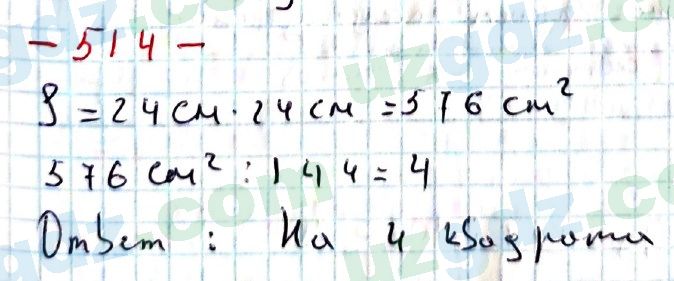 - 514 -
S = 24 см · 24 см = 576 см²
576 см² : 144 = 4
Ответ : На 4 квадрата